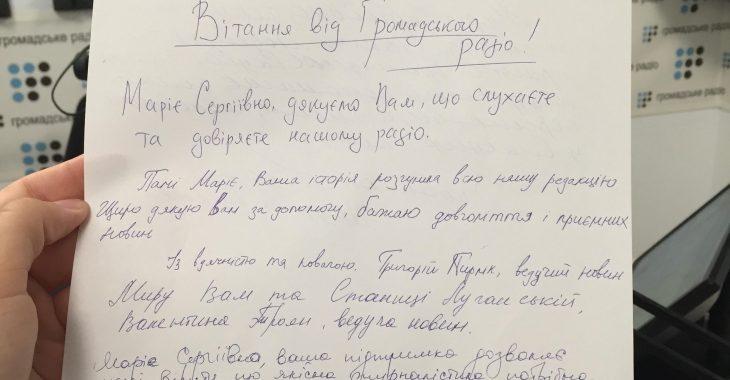 громадське радіо
громадське радіо
громадське
громадське радіо
Вітання від Громадського
радіо!
Маріє Сергіївно, дякуємо Вам, що слухаєте
та довіряєте нашому радіо.
Пані Маріє, Ваша історія розчулила всю нашу редакцію
Щиро дякую Вам за допомогу, бажаю довголіття і приємних
новин
Із вдячністю та повагою. Григорій Пирлік, ведучий новин
Миру Вам та Станиці Луганській,
Валентина Троян, ведуча новин.
Маріє Сергіївно, ваша підтримка дозволяє
що якісна журналістика потрібна